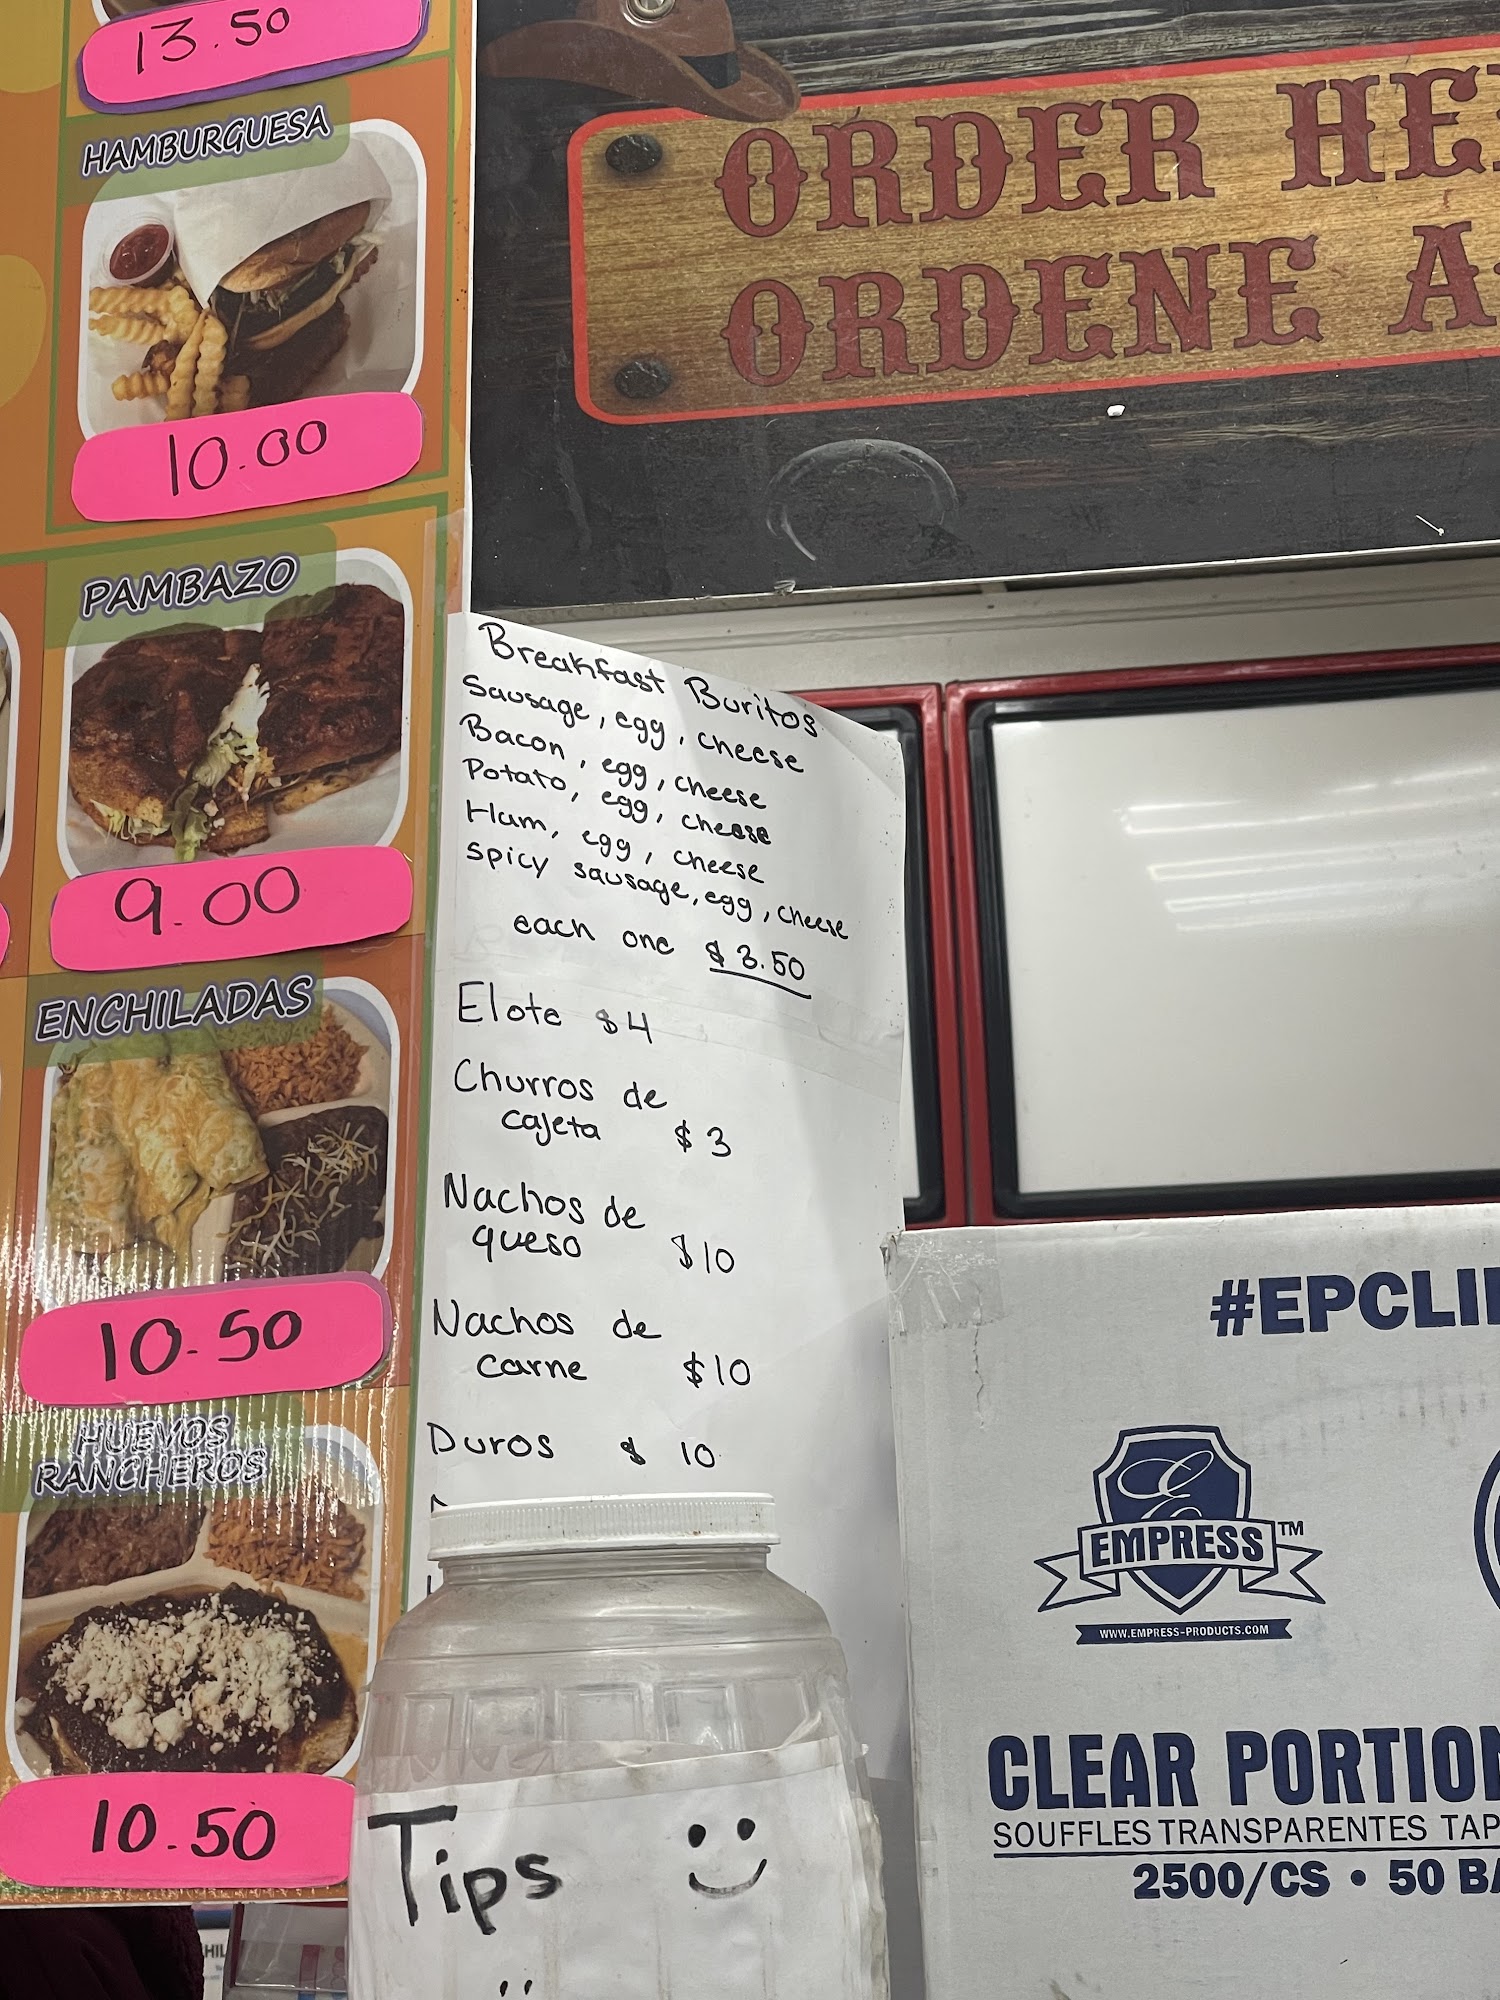 13.50
HAMBURGUESA
10.00
PAMBAZO
9.00
ENCHILADAS
10.50
HUEVOS
RANCHEROS
10.50
ORDER
ORDENE
Breakfast Buritos
Sausage, egg, cheese
Bacon, egg, cheese
Potato, egg, cheese
Ham, egg, cheese
Spicy sausage, egg, cheese
each one $3.50
Elote $4
Churros de
cajeta $3
Nachos de
queso $10
Nachos de
carne $10
Duros $10
Tips
#EPCLI
E
EMPRESS™
WWW.EMPRESS-PRODUCTS.COM
CLEAR PORTION
SOUFFLES TRANSPARENTES TAP
2500/CS • 50 BA